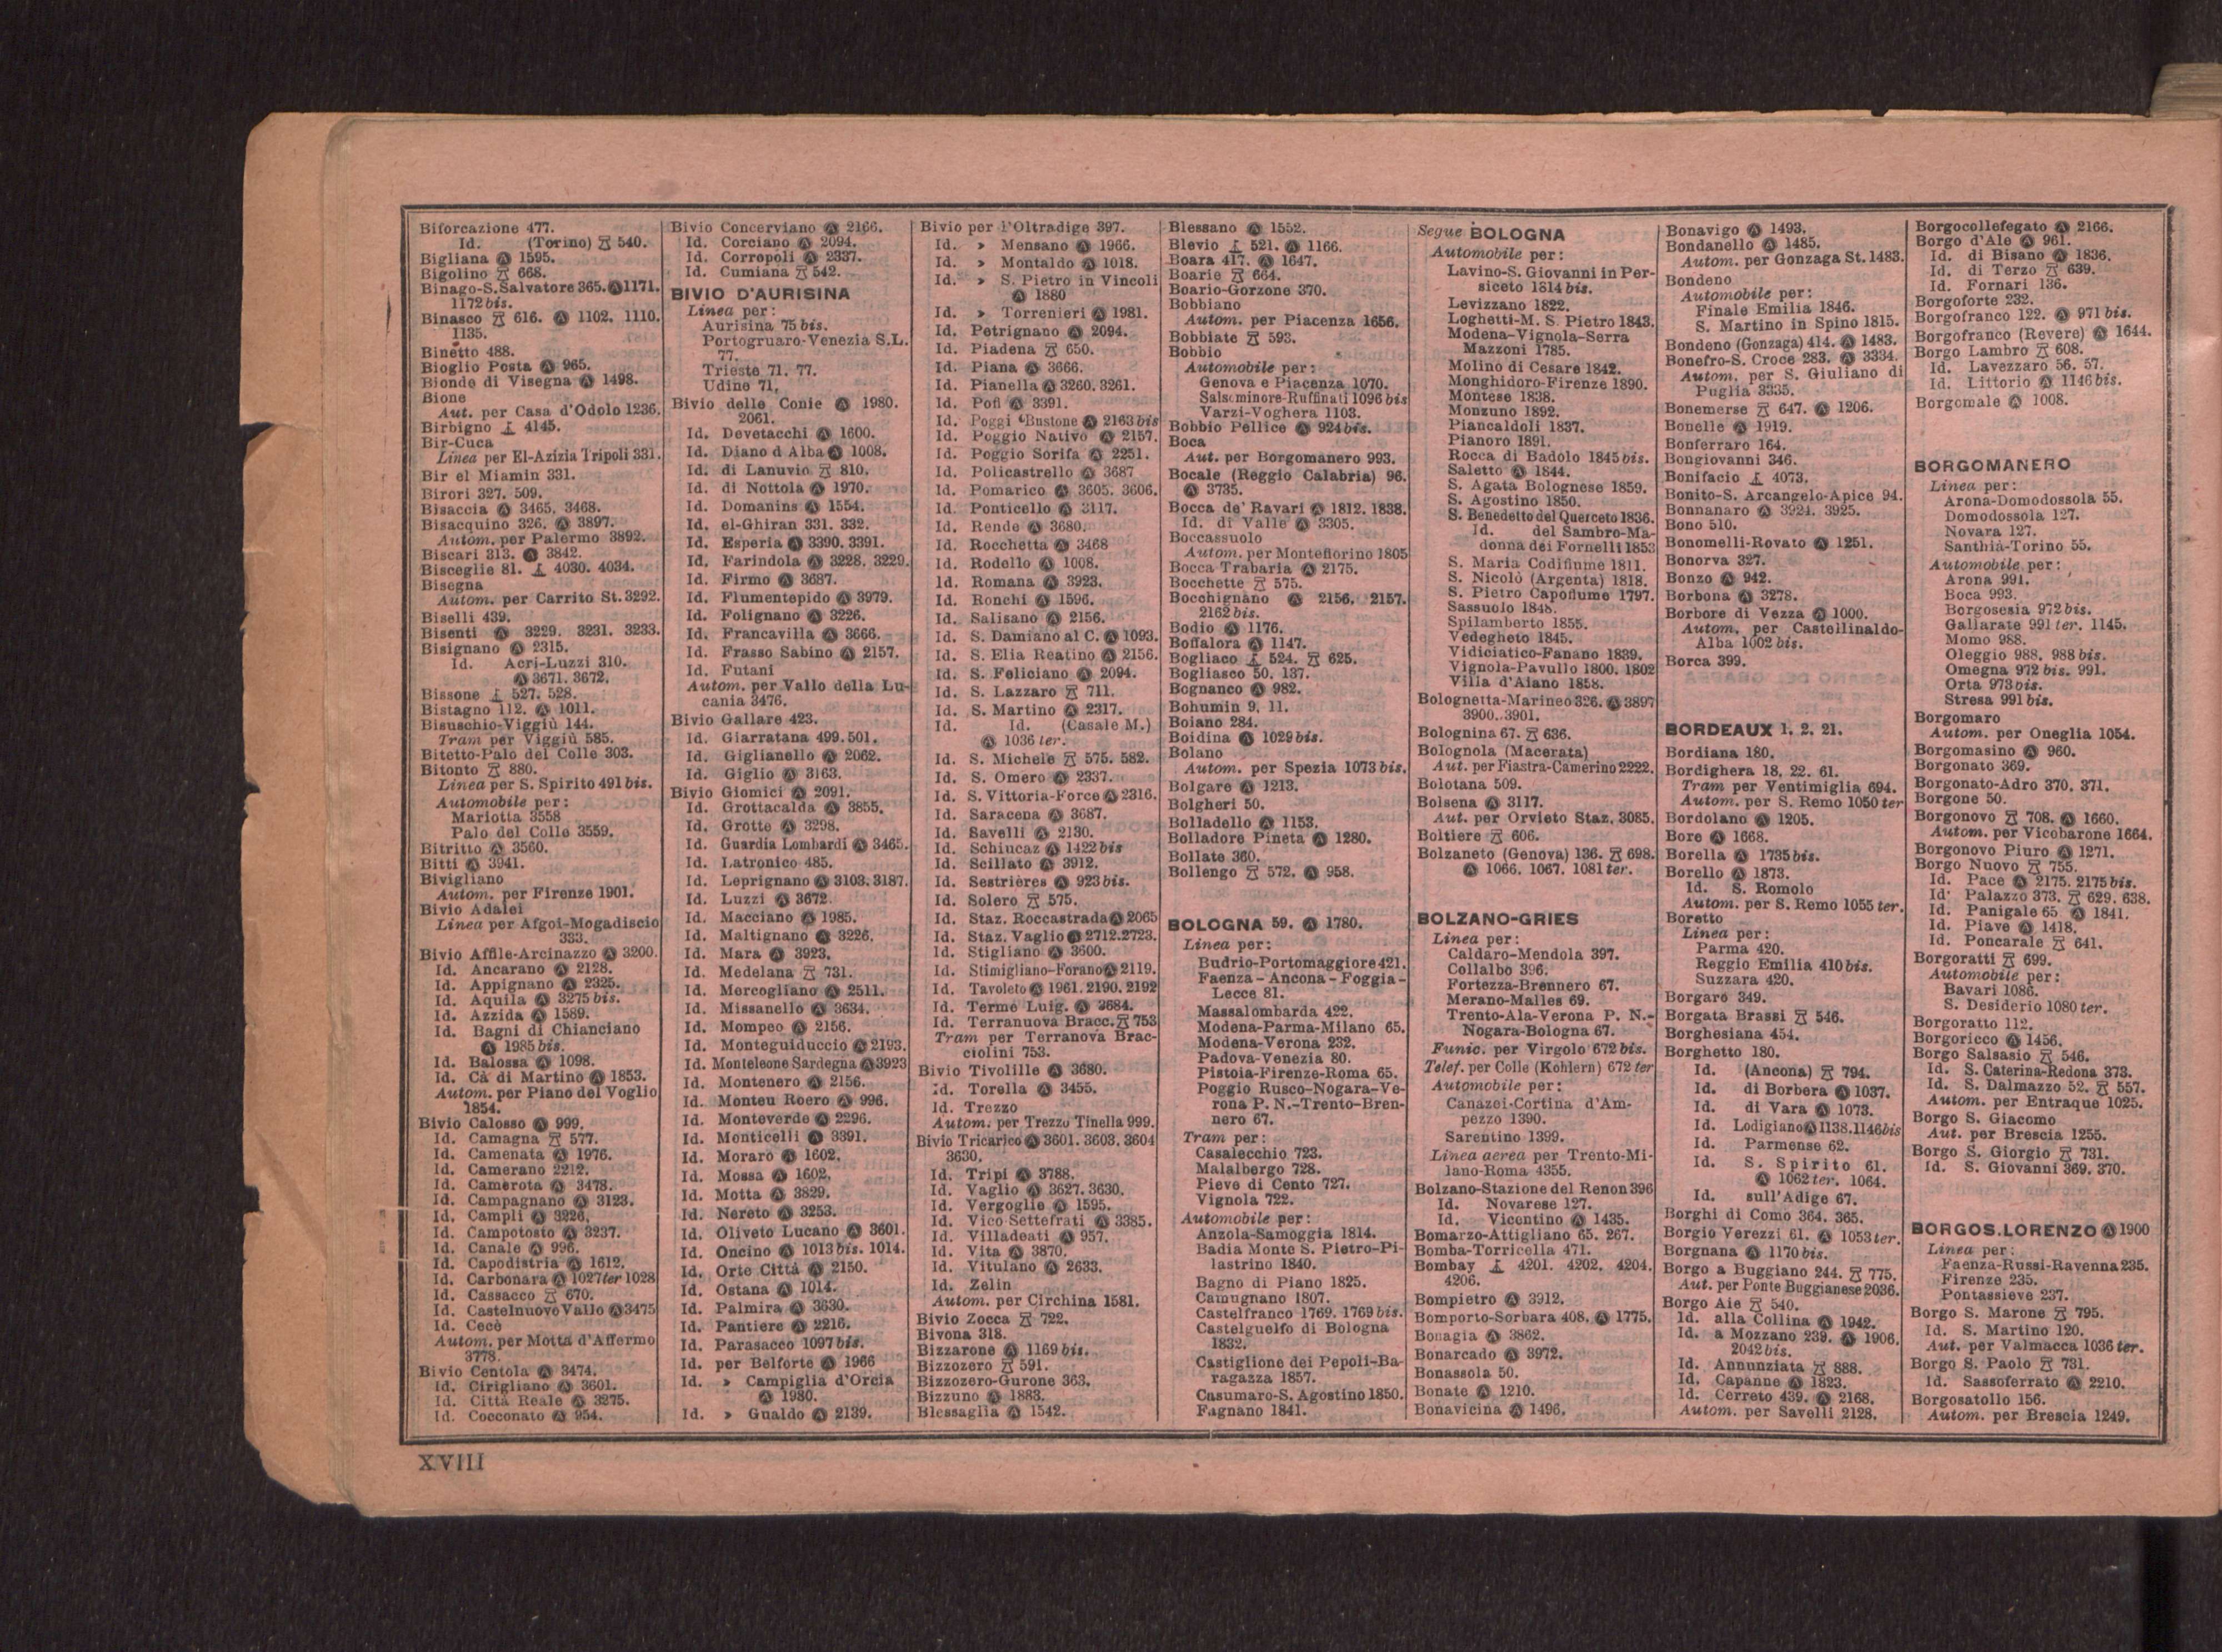 Biforcazione 477.
Id. (Torino) 540.
Bigliana Ⓐ 1595.
Bigolino 668.
Binago-S. Salvatore 365. Ⓐ 1171.
1172 bis.
Binasco 616. Ⓐ 1102. 1110.
1135.
Binetto 488.
Bioglio Posta Ⓐ 965.
Bionde di Visegna Ⓐ 1498.
Bione
Aut. per Casa d'Odolo 1236.
Birbigno 4145.
Bir-Cuca
Linea per El-Azizia Tripoli 331.
Bir el Miamin 331.
Birori 327. 509.
Bisaccia Ⓐ 3465. 3468.
Bisacquino 326. Ⓐ 3897.
Autom. per Palermo 3892.
Biscari 313. Ⓐ 3842.
Bisceglie 81. 4030. 4034.
Bisegna
Autom. per Carrito St. 3292.
Biselli 439.
Bisenti Ⓐ 3229. 3231. 3233.
Bisignano Ⓐ 2315.
Id. Acri-Luzzi 310.
Ⓐ 3671. 3672.
Bissone 527. 528.
Bistagno 112. Ⓐ 1011.
Bisuschio-Viggiù 144.
Tram per Viggiù 585.
Bitetto-Palo del Colle 303.
Bitonto 880.
Linea per S. Spirito 491 bis.
Automobile per:
Mariotta 3558
Palo del Colle 3559.
Bitritto Ⓐ 3560.
Bitti Ⓐ 3941.
Bivigliano
Autom. per Firenze 1901.
Bivio Adalei
Linea per Afgoi-Mogadiscio
333.
Bivio Affile-Arcinazzo Ⓐ 3200.
Id. Ancarano Ⓐ 2128.
Id. Appignano Ⓐ 2325.
Id. Aquila Ⓐ 3275 bis.
Id. Azzida Ⓐ 1589.
Id. Bagni di Chianciano
Ⓐ 1985 bis.
Id. Balossa Ⓐ 1098.
Id. Cà di Martino Ⓐ 1853.
Autom. per Piano del Voglio
1854.
Bivio Calosso Ⓐ 999.
Id. Camagna 577.
Id. Camenata Ⓐ 1976.
Id. Camerano 2212.
Id. Camerota Ⓐ 3478.
Id. Campagnano Ⓐ 3123.
Id. Campli Ⓐ 3226.
Id. Campotosto Ⓐ 3237.
Id. Canale Ⓐ 996.
Id. Capodistria Ⓐ 1612.
Id. Carbonara Ⓐ 1027 ter 1028
Id. Cassacco 670.
Id. Castelnuovo Vallo Ⓐ 3475
Id. Cecè
Autom. per Motta d'Affermo
3778.
Bivio Centola Ⓐ 3474.
Id. Cirigliano Ⓐ 3601.
Id. Città Reale Ⓐ 3275.
Id. Cocconato Ⓐ 954.
Bivio Concerviano Ⓐ 2166.
Id. Corciano Ⓐ 2094.
Id. Corropoli Ⓐ 2337.
Id. Cumiana 542.
BIVIO D'AURISINA
Linea per:
Aurisina 75 bis.
Portogruaro-Venezia S.L.
77.
Trieste 71. 77.
Udine 71.
Bivio delle Conie Ⓐ 1980.
2061.
Id. Devetacchi Ⓐ 1600.
Id. Diano d Alba Ⓐ 1008.
Id. di Lanuvio 810.
Id. di Nottola Ⓐ 1970.
Id. Domanins Ⓐ 1554.
Id. el-Ghiran 331. 332.
Id. Esperia Ⓐ 3390. 3391.
Id. Farindola Ⓐ 3228. 3229.
Id. Firmo Ⓐ 3687.
Id. Flumentepido Ⓐ 3979.
Id. Folignano Ⓐ 3226.
Id. Francavilla Ⓐ 3666.
Id. Frasso Sabino Ⓐ 2157.
Id. Futani
Autom. per Vallo della Lu-
cania 3476.
Bivio Gallare 423.
Id. Giarratana 499. 501.
Id. Giglianello Ⓐ 2062.
Id. Giglio Ⓐ 3163.
Bivio Giomici Ⓐ 2091.
Id. Grottacalda Ⓐ 3855.
Id. Grotte Ⓐ 3298.
Id. Guardia Lombardi Ⓐ 3465.
Id. Latronico 485.
Id. Leprignano Ⓐ 3103. 3187.
Id. Luzzi Ⓐ 3672.
Id. Macciano Ⓐ 1985.
Id. Maltignano Ⓐ 3226.
Id. Mara Ⓐ 3923.
Id. Medelana 731.
Id. Mercogliano Ⓐ 2511.
Id. Missanello Ⓐ 3634.
Id. Mompeo Ⓐ 2156.
Id. Monteguiduccio Ⓐ 2193.
Id. Monteleone Sardegna Ⓐ 3923
Id. Montenero Ⓐ 2156.
Id. Monteu Roero Ⓐ 996.
Id. Monteverde Ⓐ 2296.
Id. Monticelli Ⓐ 3391.
Id. Moraro Ⓐ 1602.
Id. Mossa Ⓐ 1602.
Id. Motta Ⓐ 3829.
Id. Nereto Ⓐ 3253.
Id. Oliveto Lucano Ⓐ 3601.
Id. Oncino Ⓐ 1013 bis. 1014.
Id. Orte Città Ⓐ 2150.
Id. Ostana Ⓐ 1014.
Id. Palmira Ⓐ 3630.
Id. Pantiere Ⓐ 2216.
Id. Parasacco 1097 bis.
Id. per Belforte Ⓐ 1966
Id. » Campiglia d'Orcia
Ⓐ 1980.
Id. » Gualdo Ⓐ 2139.
Bivio per l'Oltradige 397.
Id. » Mensano Ⓐ 1966.
Id. » Montaldo Ⓐ 1018.
Id. » S. Pietro in Vincoli
Ⓐ 1880
Id. » Torrenieri Ⓐ 1981.
Id. Petrignano Ⓐ 2094.
Id. Piadena 650.
Id. Piana Ⓐ 3666.
Id. Pianella Ⓐ 3260. 3261.
Id. Pofi Ⓐ 3391.
Id. Poggi Bustone Ⓐ 2163 bis
Id. Poggio Nativo Ⓐ 2157.
Id. Poggio Sorifa Ⓐ 2251.
Id. Policastrello Ⓐ 3687
Id. Pomarico Ⓐ 3605. 3606.
Id. Ponticello Ⓐ 3117.
Id. Rende Ⓐ 3680.
Id. Rocchetta Ⓐ 3468
Id. Rodello Ⓐ 1008.
Id. Romana Ⓐ 3923.
Id. Ronchi Ⓐ 1596.
Id. Salisano Ⓐ 2156.
Id. S. Damiano al C. Ⓐ 1093.
Id. S. Elia Reatino Ⓐ 2156.
Id. S. Feliciano Ⓐ 2094.
Id. S. Lazzaro 711.
Id. S. Martino Ⓐ 2317.
Id. Id. (Casale M.)
Ⓐ 1036 ter.
Id. S. Michele 575. 582.
Id. S. Omero Ⓐ 2337.
Id. S. Vittoria-Force Ⓐ 2316.
Id. Saracena Ⓐ 3687.
Id. Savelli Ⓐ 2130.
Id. Schiucaz Ⓐ 1422 bis
Id. Scillato Ⓐ 3912.
Id. Sestrières Ⓐ 923 bis.
Id. Solero 575.
Id. Staz. Roccastrada Ⓐ 2065
Id. Staz. Vaglio Ⓐ 2712. 2723.
Id. Stigliano Ⓐ 3600.
Id. Stimigliano-Forano Ⓐ 2119.
Id. Tavoleto Ⓐ 1961. 2190. 2192
Id. Terme Luig. Ⓐ 3684.
Id. Terranuova Bracc. 753
Tram per Terranova Brac-
ciolini 753.
Bivio Tivolille Ⓐ 3680.
Id. Torella Ⓐ 3455.
Id. Trezzo
Autom. per Trezzo Tinella 999.
Bivio Tricarico Ⓐ 3601. 3603. 3604
3630.
Id. Tripi Ⓐ 3788.
Id. Vaglio Ⓐ 3627. 3630.
Id. Vergoglie Ⓐ 1595.
Id. Vico Settefrati Ⓐ 3385.
Id. Villadeati Ⓐ 957.
Id. Vita Ⓐ 3870.
Id. Vitulano Ⓐ 2633.
Id. Zelin
Autom. per Circhina 1581.
Bivio Zocca 722.
Bivona 318.
Bizzarone Ⓐ 1169 bis.
Bizzozero 591.
Bizzozero-Gurone 363.
Bizzuno Ⓐ 1883.
Blessaglia Ⓐ 1542.
Blessano Ⓐ 1552.
Blevio 521. Ⓐ 1166.
Boara 417. Ⓐ 1647.
Boarie 664.
Boario-Gorzone 370.
Bobbiano
Autom. per Piacenza 1656.
Bobbiate 593.
Bobbio
Automobile per:
Genova e Piacenza 1070.
Salsominore-Ruffinati 1096 bis
Varzi-Voghera 1103.
Bobbio Pellice Ⓐ 924 bis.
Boca
Aut. per Borgomanero 993.
Bocale (Reggio Calabria) 96.
Ⓐ 3735.
Bocca de' Ravari Ⓐ 1812. 1838.
Id. di Valle Ⓐ 3305.
Boccassuolo
Autom. per Montefiorino 1805
Bocca Trabaria Ⓐ 2175.
Bocchette 575.
Bocchignano Ⓐ 2156. 2157.
2162 bis.
Bodio Ⓐ 1176.
Boffalora Ⓐ 1147.
Bogliaco 524. 625.
Bogliasco 50. 137.
Bognanco Ⓐ 982.
Bohumin 9. 11.
Boiano 284.
Boidina Ⓐ 1029 bis.
Bolano
Autom. per Spezia 1073 bis.
Bolgare Ⓐ 1213.
Bolgheri 50.
Bolladello Ⓐ 1153.
Bolladore Pineta Ⓐ 1280.
Bollate 360.
Bollengo 572. Ⓐ 958.
BOLOGNA 59. Ⓐ 1780.
Linea per:
Budrio-Portomaggiore 421.
Faenza-Ancona-Foggia-
Lecce 81.
Massalombarda 422.
Modena-Parma-Milano 65.
Modena-Verona 232.
Padova-Venezia 80.
Pistoia-Firenze-Roma 65.
Poggio Rusco-Nogara-Ve-
rona P. N.-Trento-Bren-
nero 67.
Tram per:
Casalecchio 723.
Malalbergo 728.
Pieve di Cento 727.
Vignola 722.
Automobile per:
Anzola-Samoggia 1814.
Badia Monte S. Pietro-Pi-
lastrino 1840.
Bagno di Piano 1825.
Camugnano 1807.
Castelfranco 1769. 1769 bis.
Castelguelfo di Bologna
1832.
Castiglione dei Pepoli-Ba-
ragazza 1857.
Casumaro-S. Agostino 1850.
Fagnano 1841.
Segue BOLOGNA
Automobile per:
Lavino-S. Giovanni in Per-
siceto 1814 bis.
Levizzano 1822.
Loghetti-M. S. Pietro 1843.
Modena-Vignola-Serra
Mazzoni 1785.
Molino di Cesare 1842.
Monghidoro-Firenze 1890.
Montese 1838.
Monzuno 1892.
Piancaldoli 1837.
Pianoro 1891.
Rocca di Badolo 1845 bis.
Saletto Ⓐ 1844.
S. Agata Bolognese 1859.
S. Agostino 1850.
S. Benedetto del Querceto 1836.
Id. del Sambro-Ma-
donna dei Fornelli 1853
S. Maria Codifiume 1811.
S. Nicolò (Argenta) 1818.
S. Pietro Capofiume 1797.
Sassuolo 1848.
Spilamberto 1855.
Vedegheto 1845.
Vidiciatico-Fanano 1839.
Vignola-Pavullo 1800. 1802
Villa d'Aiano 1858.
Bolognetta-Marineo 326. Ⓐ 3897
3900. 3901.
Bolognina 67. 636.
Bolognola (Macerata)
Aut. per Fiastra-Camerino 2222.
Bolotana 509.
Bolsena Ⓐ 3117.
Aut. per Orvieto Staz. 3085.
Boltiere 606.
Bolzaneto (Genova) 136. 698.
Ⓐ 1066. 1067. 1081 ter.
BOLZANO-GRIES
Linea per:
Caldaro-Mendola 397.
Collalbo 396.
Fortezza-Brennero 67.
Merano-Malles 69.
Trento-Ala-Verona P. N.-
Nogara-Bologna 67.
Funic. per Virgolo 672 bis.
Telef. per Colle (Kohlern) 672 ter
Automobile per:
Canazei-Cortina d'Am-
pezzo 1390.
Sarentino 1399.
Linea aerea per Trento-Mi-
lano-Roma 4355.
Bolzano-Stazione del Renon 396
Id. Novarese 127.
Id. Vicentino Ⓐ 1435.
Bomarzo-Attigliano 65. 267.
Bomba-Torricella 471.
Bombay 4201. 4202. 4204.
4206.
Bompietro Ⓐ 3912.
Bomporto-Sorbara 408. Ⓐ 1775.
Bonagia Ⓐ 3862.
Bonarcado Ⓐ 3972.
Bonassola 50.
Bonate Ⓐ 1210.
Bonavicina Ⓐ 1496.
Bonavigo Ⓐ 1493.
Bondanello Ⓐ 1485.
Autom. per Gonzaga St. 1483.
Bondeno
Automobile per:
Finale Emilia 1846.
S. Martino in Spino 1815.
Bondeno (Gonzaga) 414. Ⓐ 1483.
Bonefro-S. Croce 283. Ⓐ 3334.
Autom. per S. Giuliano di
Puglia 3335.
Bonemerse 647. Ⓐ 1206.
Bonelle Ⓐ 1919.
Bonferraro 164.
Bongiovanni 346.
Bonifacio 4073.
Bonito-S. Arcangelo-Apice 94.
Bonnanaro Ⓐ 3924. 3925.
Bono 510.
Bonomelli-Rovato Ⓐ 1251.
Bonorva 327.
Bonzo Ⓐ 942.
Borbona Ⓐ 3278.
Borbore di Vezza Ⓐ 1000.
Autom. per Castellinaldo-
Alba 1002 bis.
Borca 399.
BORDEAUX 1. 2. 21.
Bordiana 180.
Bordighera 18. 22. 61.
Tram per Ventimiglia 694.
Autom. per S. Remo 1050 ter
Bordolano Ⓐ 1205.
Bore Ⓐ 1668.
Borella Ⓐ 1735 bis.
Borello Ⓐ 1873.
Id. S. Romolo
Autom. per S. Remo 1055 ter.
Boretto
Linea per:
Parma 420.
Reggio Emilia 410 bis.
Suzzara 420.
Borgaro 349.
Borgata Brassi 546.
Borghesiana 454.
Borghetto 180.
Id. (Ancona) 794.
Id. di Borbera Ⓐ 1037.
Id. di Vara Ⓐ 1073.
Id. Lodigiano Ⓐ 1138. 1146 bis
Id. Parmense 62.
Id. S. Spirito 61.
Ⓐ 1062 ter. 1064.
Id. sull'Adige 67.
Borghi di Como 364. 365.
Borgio Verezzi 61. Ⓐ 1053 ter.
Borgnana Ⓐ 1170 bis.
Borgo a Buggiano 244. 775.
Aut. per Ponte Buggianese 2036.
Borgo Aie 540.
Id. alla Collina Ⓐ 1942.
Id. a Mozzano 239. Ⓐ 1906.
2042 bis.
Id. Annunziata 888.
Id. Capanne Ⓐ 1823.
Id. Cerreto 439. Ⓐ 2168.
Autom. per Savelli 2128.
Borgocollefegato Ⓐ 2166.
Borgo d'Ale Ⓐ 961.
Id. di Bisano Ⓐ 1836.
Id. di Terzo 639.
Id. Fornari 136.
Borgoforte 232.
Borgofranco 122. Ⓐ 971 bis.
Borgofranco (Revere) Ⓐ 1644.
Borgo Lambro 608.
Id. Lavezzaro 56. 57.
Id. Littorio Ⓐ 1146 bis.
Borgomale Ⓐ 1008.
BORGOMANERO
Linea per:
Arona-Domodossola 55.
Domodossola 127.
Novara 127.
Santhià-Torino 55.
Automobile per:
Arona 991.
Boca 993.
Borgosesia 972 bis.
Gallarate 991 ter. 1145.
Momo 988.
Oleggio 988. 988 bis.
Omegna 972 bis. 991.
Orta 973 bis.
Stresa 991 bis.
Borgomaro
Autom. per Oneglia 1054.
Borgomasino Ⓐ 960.
Borgonato 369.
Borgonato-Adro 370. 371.
Borgone 50.
Borgonovo 708. Ⓐ 1660.
Autom. per Vicobarone 1664.
Borgonovo Piuro Ⓐ 1271.
Borgo Nuovo 755.
Id. Pace Ⓐ 2175. 2175 bis.
Id' Palazzo 373. 629. 638.
Id. Panigale 65. Ⓐ 1841.
Id. Piave Ⓐ 1418.
Id. Poncarale 641.
Borgoratti 699.
Automobile per:
Bavari 1086.
S. Desiderio 1080 ter.
Borgoratto 112.
Borgoricco Ⓐ 1456.
Borgo Salsasio 546.
Id. S. Caterina-Redona 373.
Id. S. Dalmazzo 52. 557.
Autom. per Entraque 1025.
Borgo S. Giacomo
Aut. per Brescia 1255.
Borgo S. Giorgio 731.
Id. S. Giovanni 369. 370.
BORGO S. LORENZO Ⓐ 1900
Linea per:
Faenza-Russi-Ravenna 235.
Firenze 235.
Pontassieve 237.
Borgo S. Marone 795.
Id. S. Martino 120.
Aut. per Valmacca 1036 ter.
Borgo S. Paolo 731.
Id. Sassoferrato Ⓐ 2210.
Borgosatollo 156.
Autom. per Brescia 1249.
XVIII